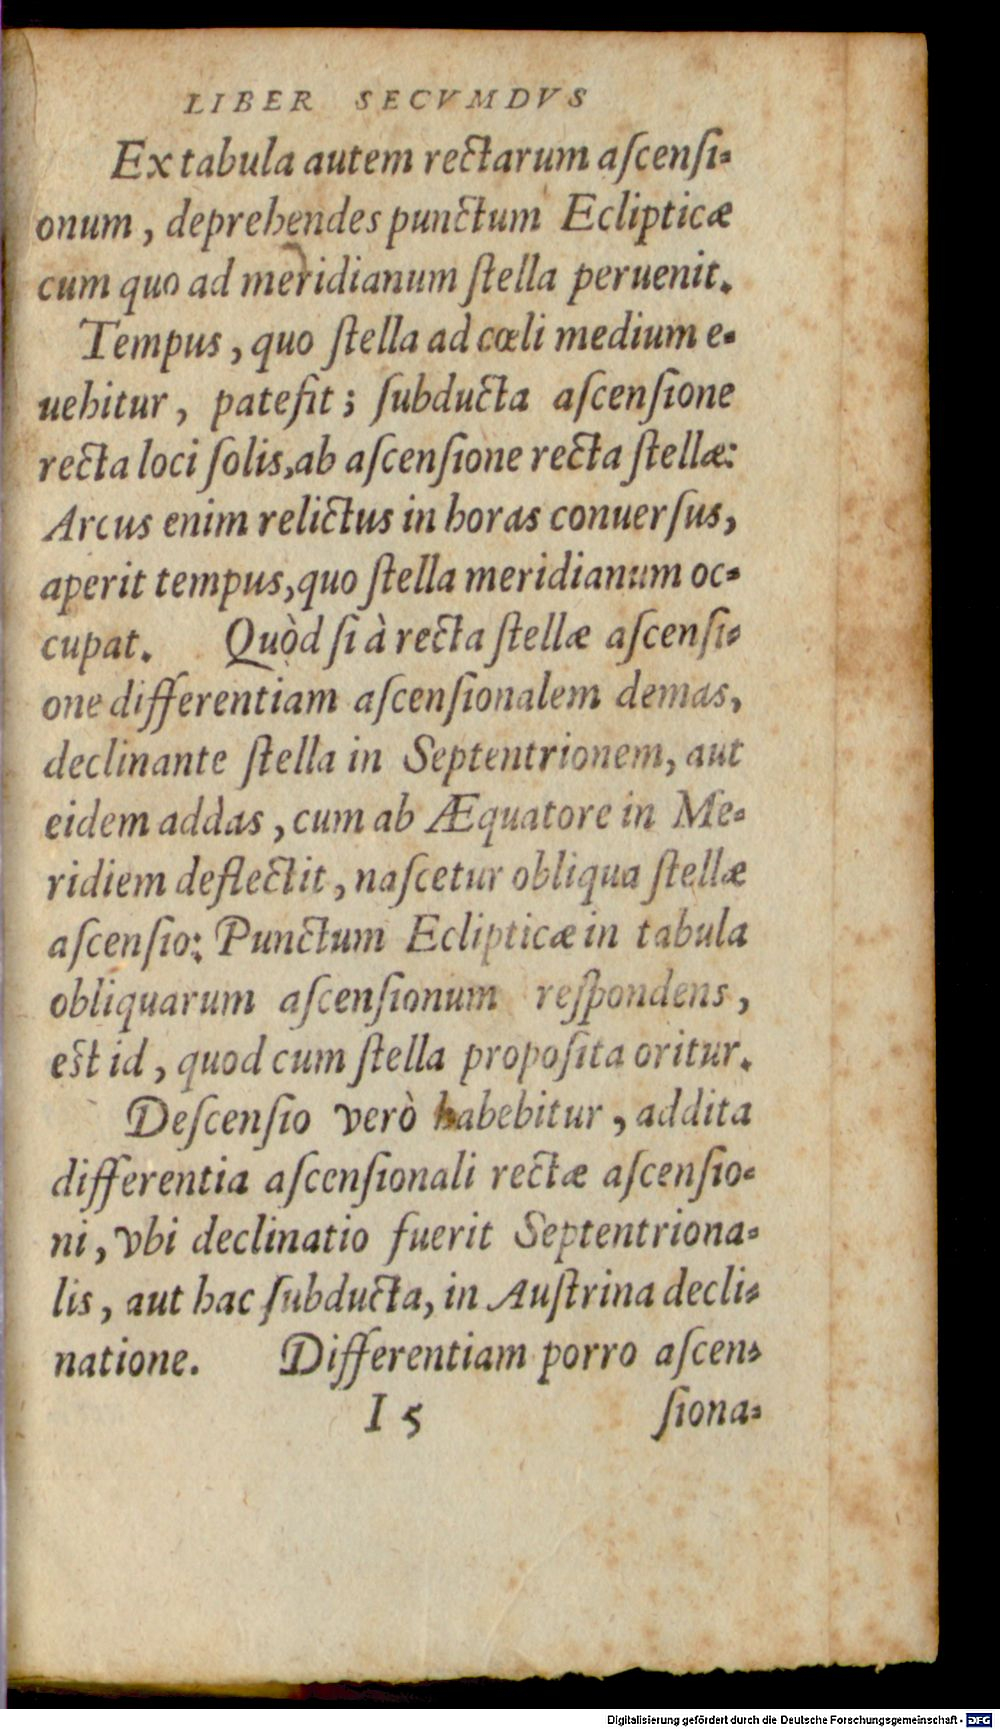 LIBER SECVMDVS
Ex tabula autem rectarum aſcenſi-
onum, deprehendes punctum Eclipticæ
cum quo ad meridianum ſtella peruenit.
Tempus, quo ſtella ad cœli medium e-
uehitur, patefit; ſubducta aſcenſione
recta loci ſolis, ab aſcenſione recta ſtellæ:
Arcus enim relictus in horas conuerſus,
aperit tempus, quo ſtella meridianum oc-
cupat. Quòd ſi à recta ſtellæ aſcenſi-
one differentiam aſcenſionalem demas,
declinante ſtella in Septentrionem, aut
eidem addas, cum ab Æquatore in Me-
ridiem deflectit, naſcetur obliqua ſtellæ
aſcenſio: Punctum Eclipticæ in tabula
obliquarum aſcenſionum reſpondens,
est id, quod cum ſtella propoſita oritur.
Deſcenſio verò habebitur, addita
differentia aſcenſionali rectæ aſcenſio-
ni, vbi declinatio fuerit Septentriona-
lis, aut hac ſubducta, in Auſtrina decli-
natione. Differentiam porro aſcen-
I 5 ſiona-
Digitalisierung gefördert durch die Deutsche Forschungsgemeinschaft - DFG